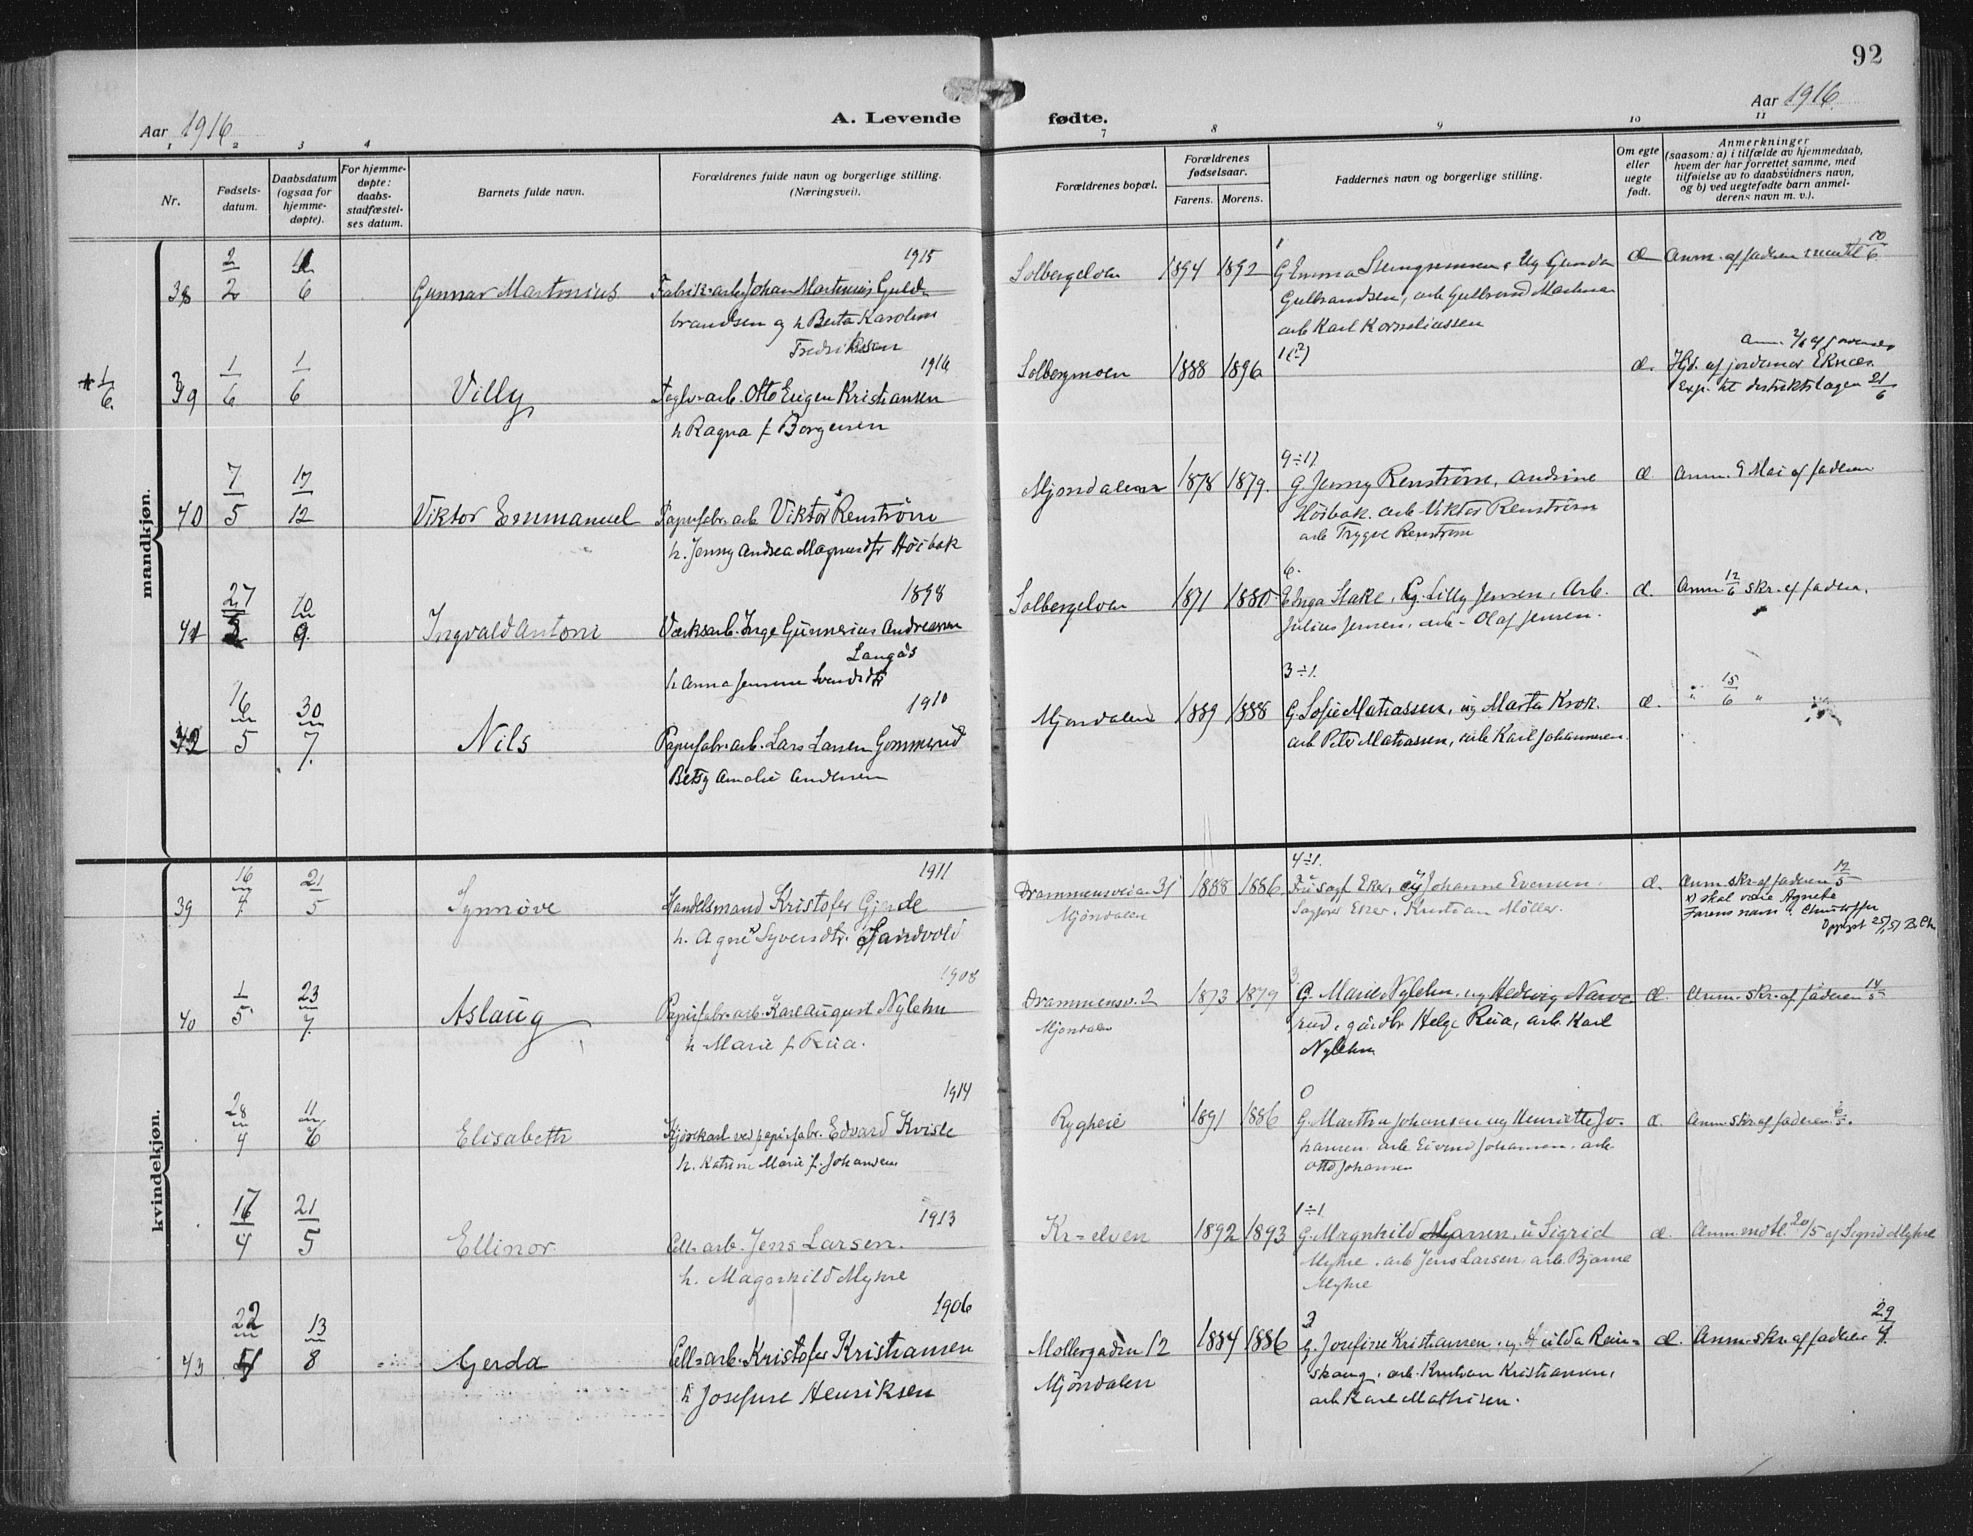 92
Aar 1916
A. Levende
fødte.
Aar 1916.
1 2 3 4 7 8 9 10 11
Nr.
Fødsels-
datum.
Daabsdatum
(ogsaa for
hjemme-
døpte).
For hjemme-
døpte:
daabs-
stadfæstel-
ses datum.
Barnets fulde navn.
Forældrenes fulde navn og borgerlige stilling.
(Næringsvei).
Forældrenes bopæl.
Forældrenes
fødselsaar.
Farens. Morens.
Faddernes navn og borgerlige stilling.
Om egte
eller
uegte
født.
Anmerkninger
(saasom: a) i tilfælde av hjemmedaab,
hvem der har forrettet samme, med
tilføielse av to daabsvidners navn,
og b) ved uegtefødte barn anmel-
derens navn m. v.).
mandkjøn.
38
2/2
6
Gunnar Martinius
1915
Fabrik.arb. Johan Martinius Guld-
brandsen og h Berta Karoline
Fredriksen
Solbergelven 1894 1892
1
G Emma Ug Gunda
Gulbrandsen, arb Gulbrand
arb Karl Korneliassen
æ Anm. af faderen 10/6
* 1/6.
39
1/6
1/6
Villy
1916
Teglv-arb. Otto Eugen Kristiansen
h Ragna f Borgersen
Solbergmoen 1888 1896
1(?)
æ. Anm. 2/6 af
Hjd. af jordemor Eknæs.
Exp. til distriktslægen 21/6
40
7/5
17/12
Viktor Emmanuel
Papirfabr. arb Viktor Renström
h. Jenny Andrea Magnusdtr Höibak
Mjöndalen 1878 1879.
9÷1).
G Jenny Renström, Andrine
Höibak. arb. Viktor Renström
arb Trygve Renström
æ. Anm. 9 Mai af faderen
41
27
10/9.
Ingvald Antoni
1898
Værksarb. Inge Gunnerius Andreasen
Langås
h Anna Jensine Svendsdtr
Solbergelven 1871 1880
6.
E Inga Stake, Ug. Lilly Jensen, Arb.
Julius Jensen, arb- Olaf Jensen.
æ. Anm. 12/6 skr. af faderen.
42
16/5
30/7.
Nils
1910
Papirfabr. arb. Lars Larsen Gommerud
Betsy Amalie Andersen
Mjöndalen 1889 1888
3÷1.
G. Sofie Matiassen, ug Marta Krok.
arb Peter Matiassen, arb Karl Johannesen.
æ. " 15/6 "
kvindekjøn.
39
16/4.
21/5
Synnöve
1911
Handelsmand Kristofer Gjerde
h. Agne x Syversdtr. Sandvold
Drammensveien 31
Mjöndalen
1888 1886
4÷1.
Fru Eker, ug Johanne Evensen.
Eker, Kristian Möller.
æ. Anm. skr. af faderen 12/5
x) skal være Agnete
Farens navn: Christoffer
Opplyst 25/ 51 B. Chr
40
1/5
23/7.
Aslaug
1908
Papirfabr. arb. Karl August Nylehn
h Marie f Rua.
Drammensv. 2
Mjöndalen
1873 1879
3
G. Marie Nylehn, ug Hedvig Narve-
rud, gårdbr Helge Rua, arb. Karl
Nylehn
æ. Anm. skr. af faderen 14/5
28/4
11/6
Elisabeth
1914
Kjörekarl ved papirfabr. Edvard Kvisle
h. Katrine Marie f. Johansen
Rygheie 1891 1886
0
G. Martha Johansen ug Henriette Jo-
hansen. arb Eivind Johansen. arb.
Otto Johansen
æ. Anm. skr. af faderen
17/4
21/5
Ellinor
1913
Cell-arb. Jens Larsen.
h. Magnhild Myhre
Kr=elven 1892 1893
1÷1.
G. Magnhild Larsen, u Sigrid
Myhre, arb Jens Larsen, arb. Bjarne
Myhre
æ. Anm. mdtl. 20/5 af Sigrid Myhre
43
22
13/8
Gerda
1906
Cell=arb. Kristofer Kristiansen
h Josefine Henriksen
Möllergaden 12
Mjöndalen
1884 1886
3
G. Josefine Kristiansen, ug. Hulda Rein=
skaug, arb. Kristian Kristiansen,
arb Karl Mathisen.
æ. Anm. skr. af faderen 29/4.